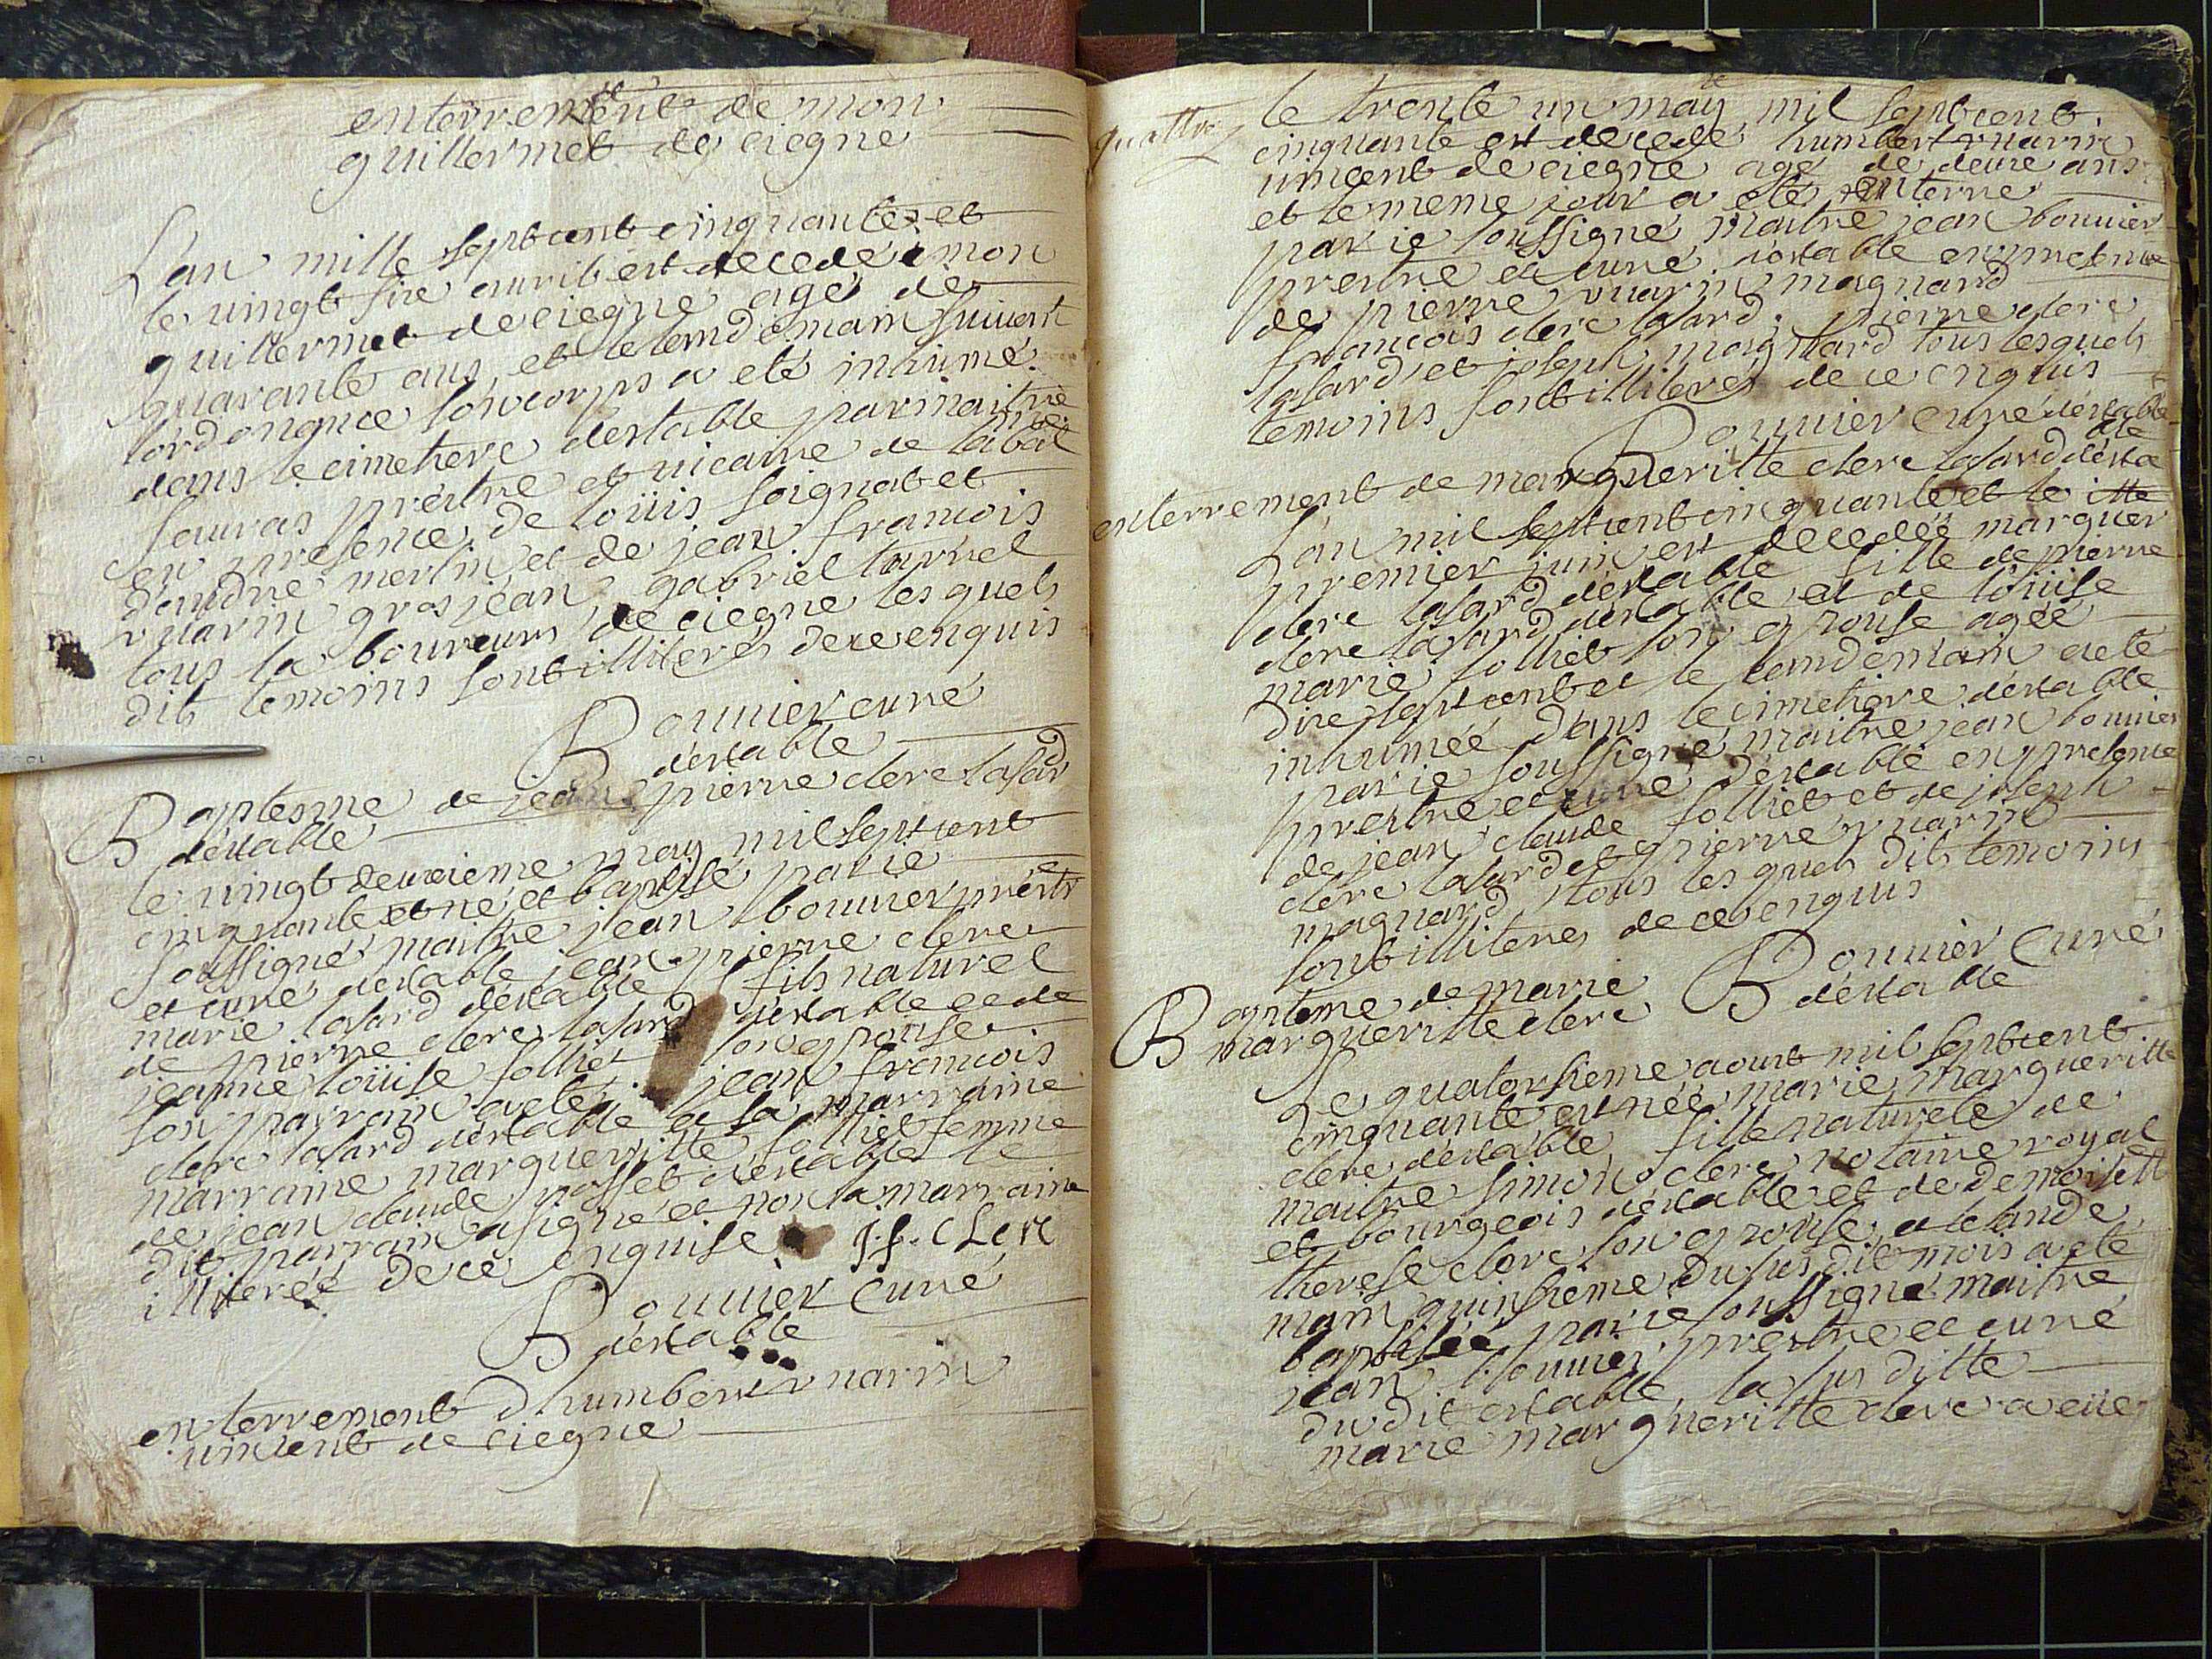 enterrement de mon
guillermet de ciegne
Lan mille septcent cinquante et
le vingt sixe avril est decedé emon
guillermet de ciegne agé de
quarante ans et le lendemain suivant
lordongnce son corps a eté inhumé
dans le cimetiere destable par maitre
favras prestre et vicaire de
en presence de loüis soignat et
dandré merlin et de jean francois
vuarin grosjean gabriel tarvel
tous laboureurs de ciegne les quels
dit temoins sont illiterés de ce enquis
Bouvier curé
déstable
Baptesme de jean pierre clerc lasard
déstable
le vingt deuxieme may mil septcent
cinquante est né et baptisé par ie
soussigné maitre jean bouvier prestre
et curé destable jean pierre clerc
marie lasard déstable fils naturel
de pierre clerc lasard déstable et de
jeanne loüise folliet son epouse
son parrain a eté jean francois
clerc lasard déstable et sa marraine
marraine margueritte folliet femme
de jean claude posset destable le
dit parrain a signé et non la marraine
illiterée de ce enquise J. f. CLerc
Bouvier Curé
déstable
enterrement dhumbert vuarin
vincent de ciegne
quattre
le trente un may mil septcent
cinquante est decede humbert vuarin
vincent de ciegne agé de deux ans
et le meme jour a eté enterré
par ie soussigné maitre jean bouvier
prestre et curé destable en presence
de pierre vuarin magnard
francois clerc lasard, pierre clerc
lasard et joseph magnard tous lesquels
temoins sont illiteres de ce enquis
Bouvier curé déstable
enterrement de margueritte clerc lasard désta
ble
Lan mil septcent cinquante et le
premier juin est decedeé marguer
itte
clerc lasard déstable fille de pierre
clerc lasard déstable et de loüise
marie folliet son epouse ageé
dixsept ans et le lendemain a eté
inhumeé dans le cimetiere déstable
par ie soussigné maitre jean bouvier
prestre et curé déstable en presence
de jean claude folliet et de joseph
clerc lasard et pierre vuarin
magnard tous les quels dits temoins
sont illiteres de ce enquis
Bouvier Curé
déstable
Bapteme de marie
margueritte clerc
Le quatorsieme aoust mil septcent
cinquante est neé marie margueritte
clerc déstable fille naturele de
maitre simon clerc notaire royal
et bourgeois déstable et de demoiselle
therese clerc son epouse, a lelande
main quinsieme du susdit mois a eté
baptiseé par ie soussigné maitre
jean bouvier prestre et curé
dudit estable, la sus ditte
marie margueritte clerc a eue